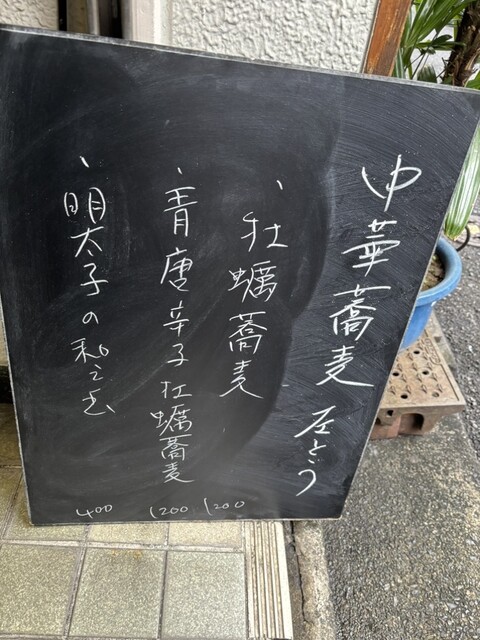 中華蕎麦
、牡蠣蕎麦 1200
、青唐辛子牡蠣蕎麦 1200
、明太子の和え玉 400